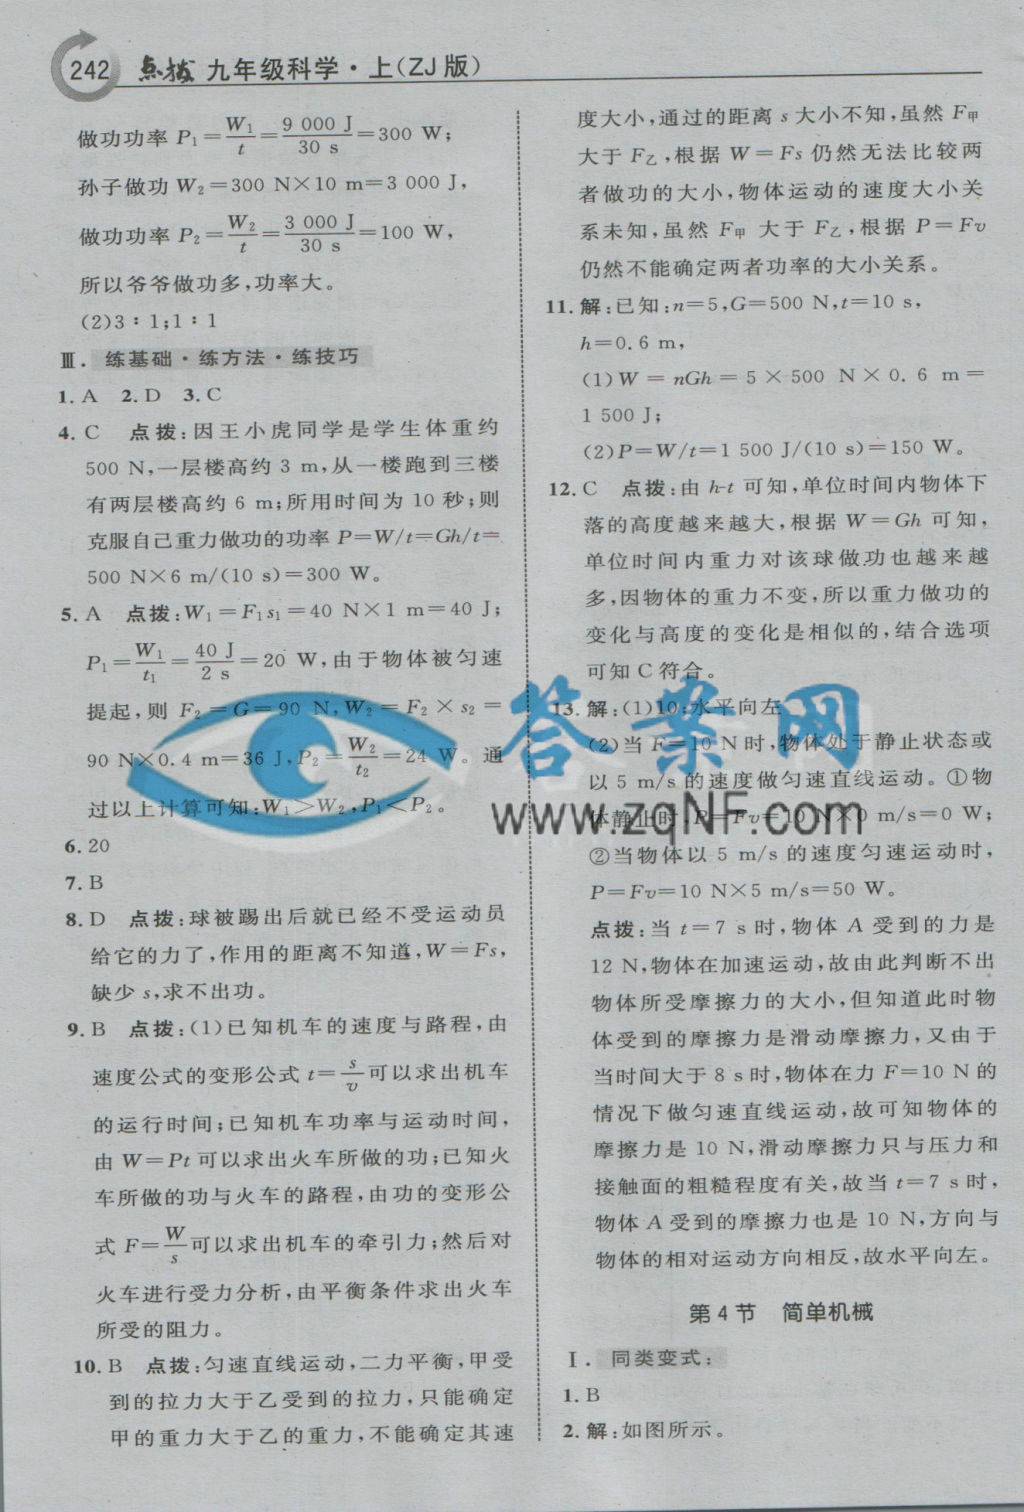 242 点拨 九年级科学·上(ZJ版)
做功功率 P₁=W₁/t=9 000 J/30 s=300 W;
孙子做功 W₂=300 N×10 m=3 000 J,
做功功率 P₂=W₂/t=3 000 J/30 s=100 W,
所以爷爷做功多,功率大。
(2)3∶1;1∶1
Ⅲ. 练基础·练方法·练技巧
1. A 2. D 3. C
4. C 点拨:因王小虎同学是学生体重约
500 N,一层楼高约 3 m,从一楼跑到三楼
有两层楼高约 6 m;所用时间为 10 秒;则
克服自己重力做功的功率 P=W/t=Gh/t=
500 N×6 m/(10 s)=300 W。
5. A 点拨:W₁=F₁s₁=40 N×1 m=40 J;
P₁=W₁/t₁=40 J/2 s=20 W,由于物体被匀速
提起,则 F₂=G=90 N,W₂=F₂×s₂=
90 N×0.4 m=36 J,P₂=W₂/t₂=24 W。通
过以上计算可知:W₁>W₂,P₁<P₂。
6. 20
7. B
8. D 点拨:球被踢出后就已经不受运动员
给它的力了,作用的距离不知道,W=Fs,
缺少 s,求不出功。
9. B 点拨:(1)已知机车的速度与路程,由
速度公式的变形公式 t=s/v可以求出机车
的运行时间;已知机车功率与运动时间,
由 W=Pt 可以求出火车所做的功;已知火
车所做的功与火车的路程,由功的变形公
式 F=W/s可以求出机车的牵引力;然后对
火车进行受力分析,由平衡条件求出火车
所受的阻力。
10. B 点拨:匀速直线运动,二力平衡,甲受
到的拉力大于乙受到的拉力,只能确定
甲的重力大于乙的重力,不能确定其速
度大小,通过的距离 s 大小不知,虽然 F甲
大于 F乙,根据 W=Fs 仍然无法比较两
者做功的大小,物体运动的速度大小关
系未知,虽然 F甲 大于 F乙,根据 P=Fv
仍然不能确定两者功率的大小关系。
11. 解:已知:n=5,G=500 N,t=10 s,
h=0.6 m,
(1)W = nGh = 5 × 500 N × 0.6 m =
1 500 J;
(2)P=W/t=1 500 J/(10 s)=150 W。
12. C 点拨:由 h-t 可知,单位时间内物体下
落的高度越来越大,根据 W=Gh 可知,
单位时间内重力对该球做功也越来越
多,因物体的重力不变,所以重力做功的
变化与高度的变化是相似的,结合选项
可知 C 符合。
13. 解:(1)10;水平向左
(2)当 F=10 N 时,物体处于静止状态或
以 5 m/s 的速度做匀速直线运动。①物
体静止时,P=Fv=10 N×0 m/s=0 W;
②当物体以 5 m/s 的速度匀速运动时,
P=Fv=10 N×5 m/s=50 W。
点拨:当 t=7 s 时,物体 A 受到的力是
12 N,物体在加速运动,故由此判断不出
物体所受摩擦力的大小,但知道此时物
体受到的摩擦力是滑动摩擦力,又由于
当时间大于 8 s 时,物体在力 F=10 N 的
情况下做匀速直线运动,故可知物体的
摩擦力是 10 N,滑动摩擦力只与压力和
接触面的粗糙程度有关,故当 t=7 s 时,
物体 A 受到的摩擦力也是 10 N,方向与
物体的相对运动方向相反,故水平向左。
第 4 节 简单机械
Ⅰ. 同类变式:
1. B
2. 解:如图所示。
答案网
www.zqNF.com